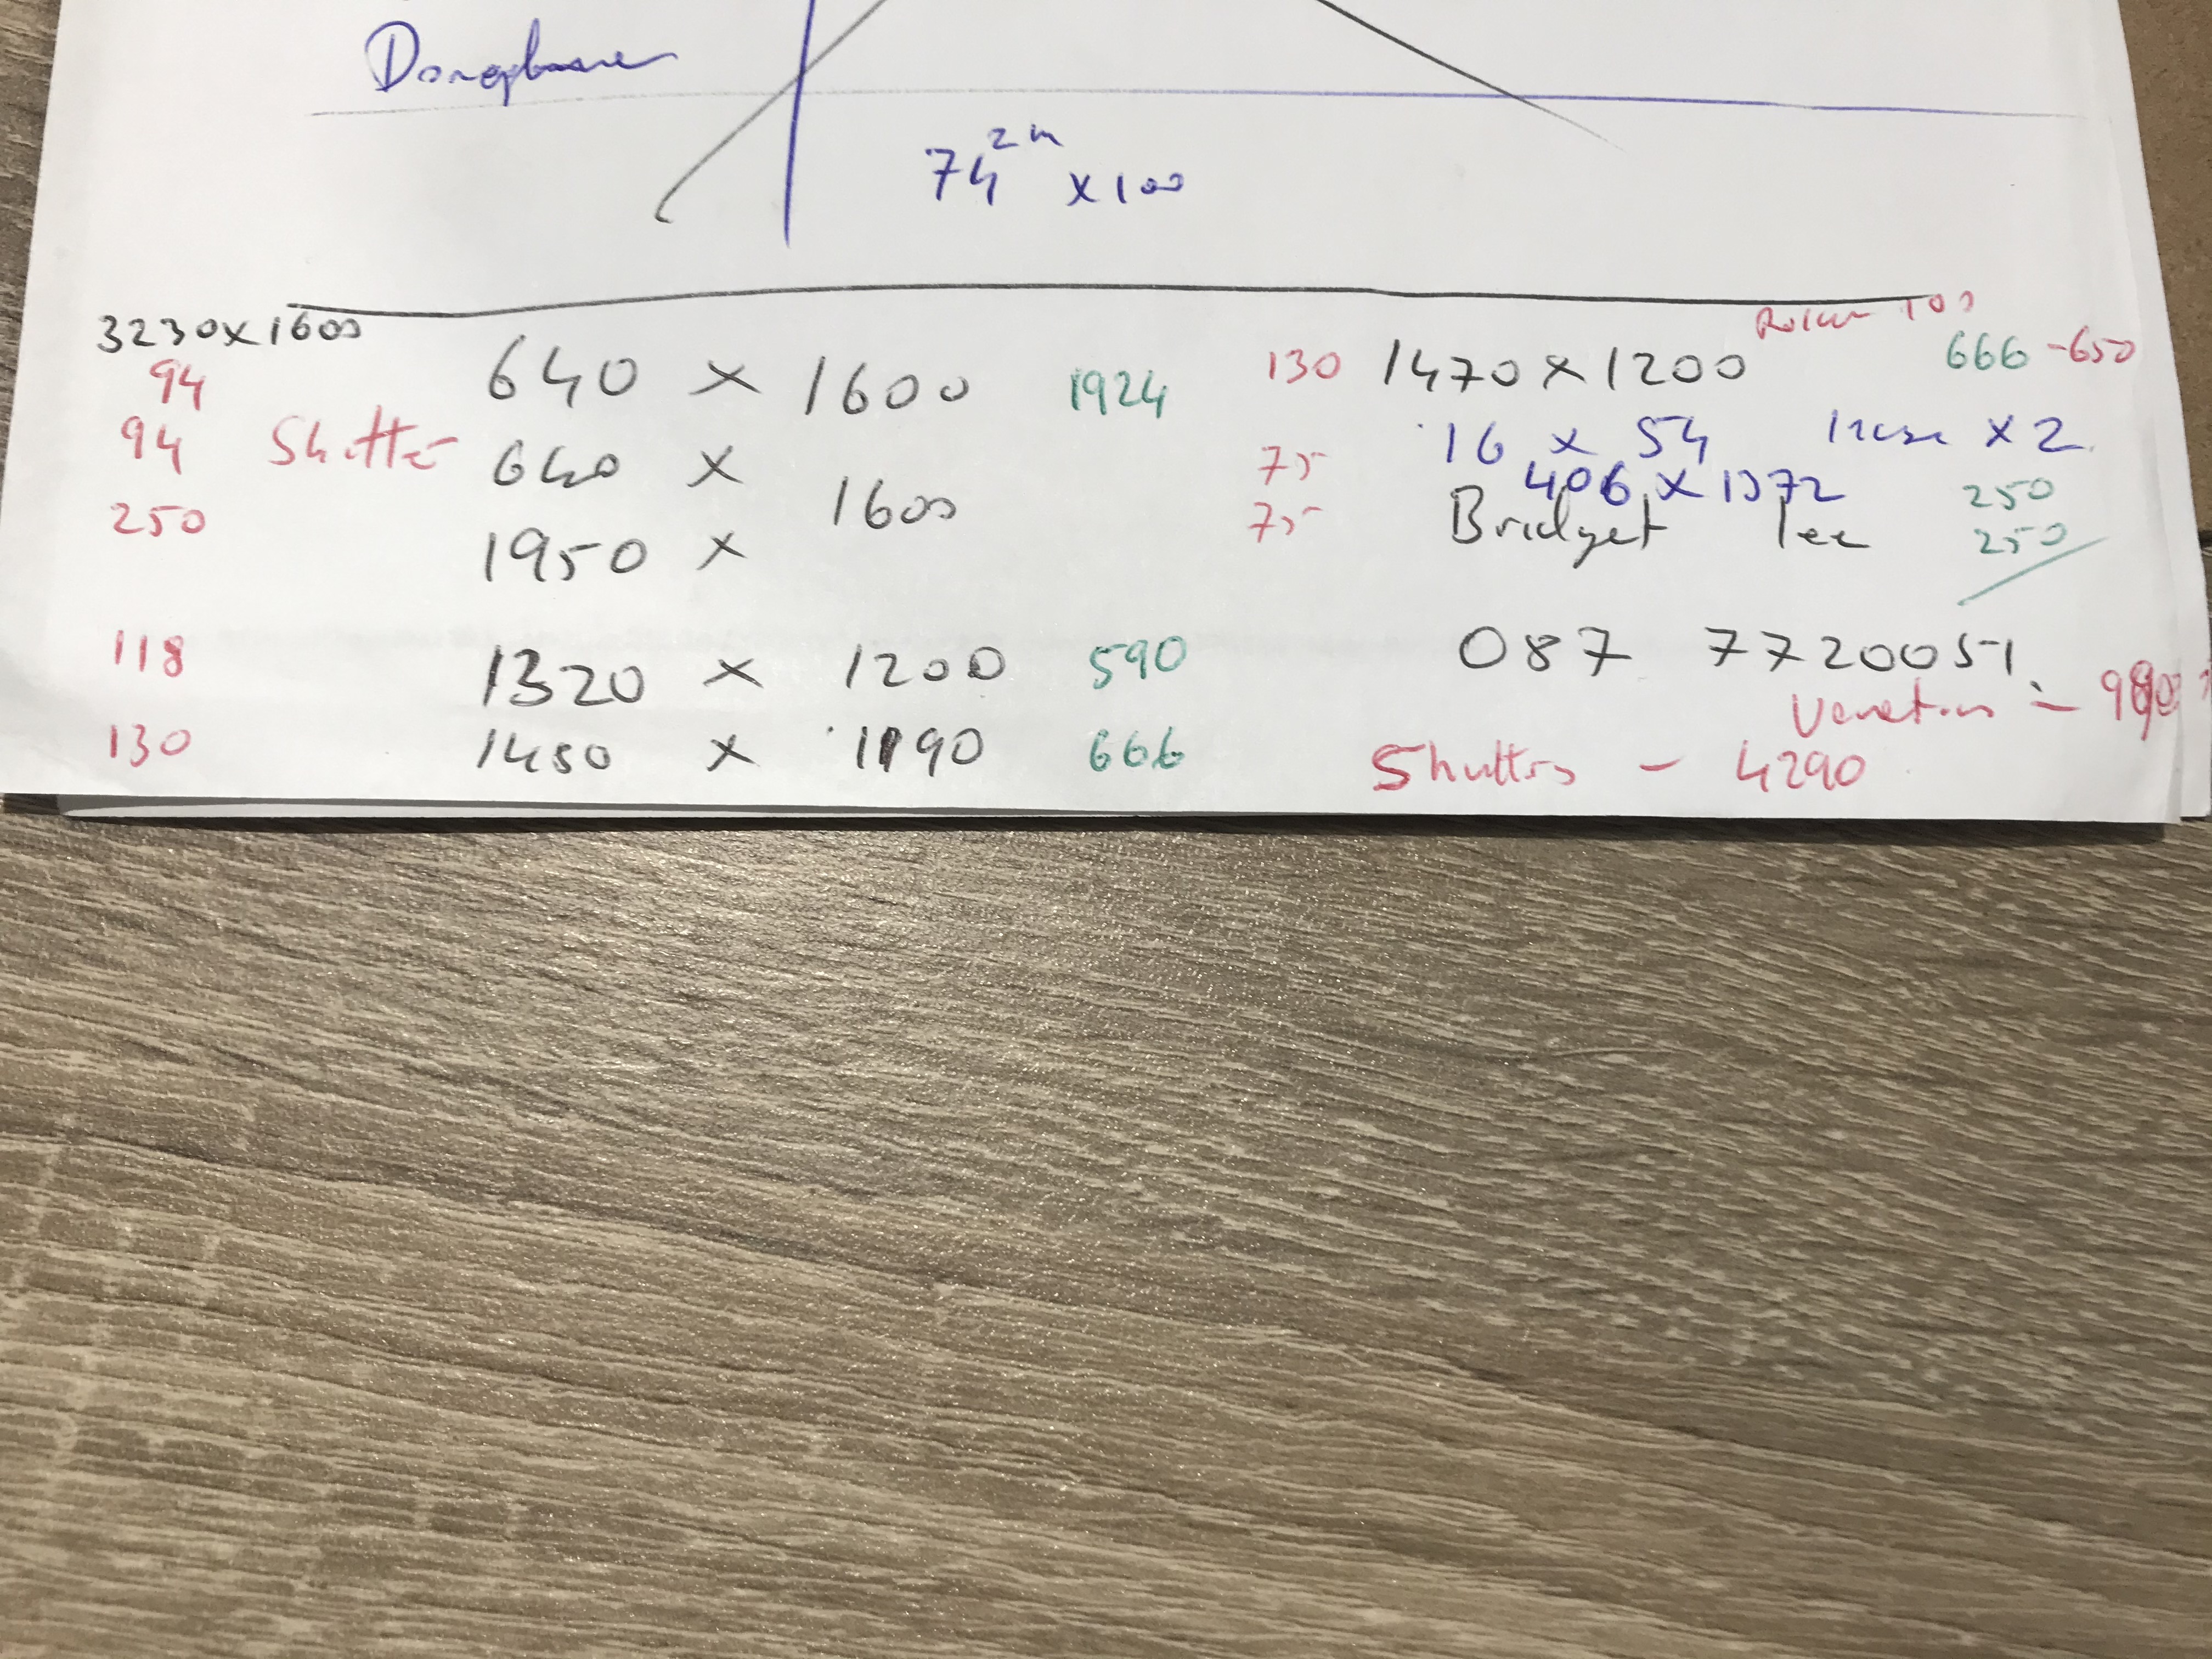 74 2m x 100
3230 x 1600
94 640 x 1600 1924
94 Shutter 640 x
1600
250 1950 x
118 1320 x 1200 590
130 1450 x 1190 666
Roller 100
130 1470 x 1200 666 -650
16 x 54 x 2
75 406 x 1372 250
75 Bridget Lee 250
087 7720051
Venetian -
Shutters - 4290